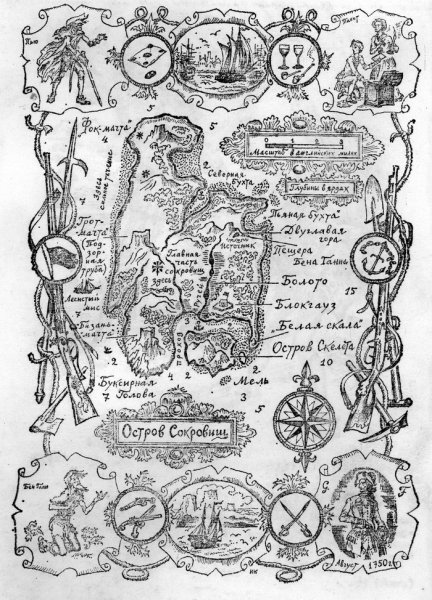 Пью
Пират
5
5
„Фок-мачта"
4
Здесь
сильное течение
2
Северная
бухта
Масштаб в английских милях
Глубины в ярдах
1
Грот-
мачта
Подзор-
ная
труба
Лесистый
мыс
7
Бизань-
мачта
Главная
часть
сокровищ
здесь
источник
„Пьяная бухта"
Двуглавая
гора
Пещера
Бена Ганна
Болото
15
Блокгауз
„Белая скала"
Остров Скелета
10
проход
2
2
4
2
Буксирная
7 Голова
Мель
3
5
Остров Сокровищ
Бен Ганн
Август 1750 г.